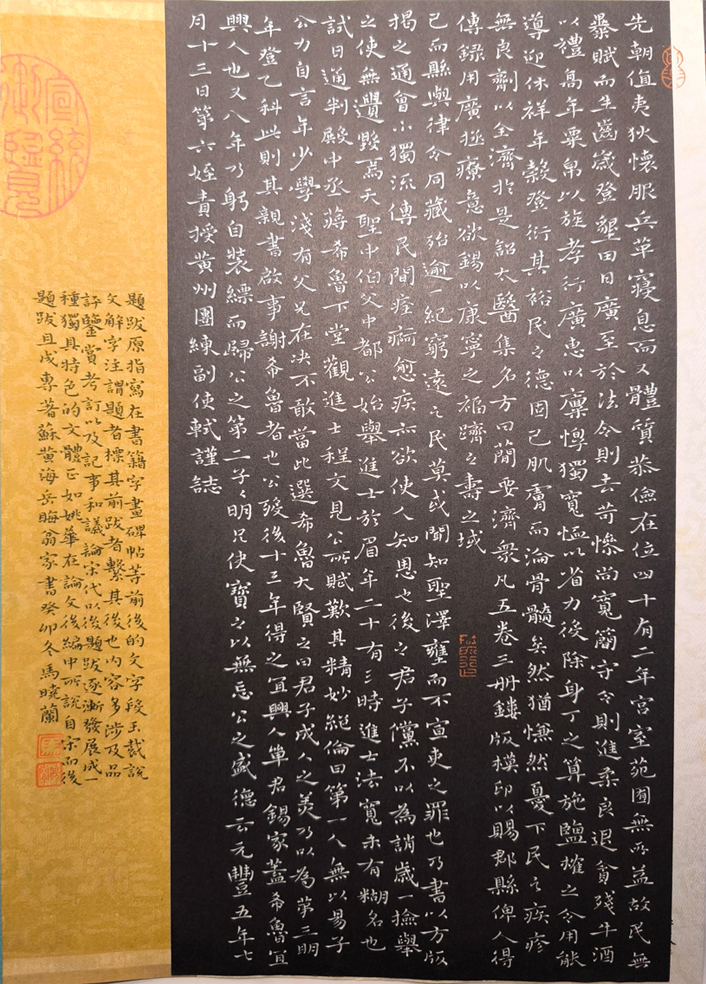 先朝值夷狄懷服兵革寢息而又體質恭儉在位四十有二年宮室苑囿無所益故民無
暴賦而生齒歲登墾田日廣至於法令則去苛慘尚寬簡守令則進柔良退貪殘牛酒
以禮高年粟帛以旌孝行廣惠以廩惸獨寬恤以省力後除身丁之算施鹽榷之令用能
導迎休祥年穀登衍其裕民之德固已肌膚而淪骨髓矣然猶憮然憂下民之疾疹
無良劑以全濟於是詔太醫集名方曰簡要濟衆凡五卷三册鏤版模印以賜郡縣俾人得
傳録用廣拯療意欲錫以康寧之福躋之壽之域
已而縣與律令同藏殆逾一紀窮遠之民莫或聞知聖澤壅而不宣吏之罪也乃書以方版
揭之通會不獨流傳民間痊痾愈疾亦欲使人知恩也後之君子儻不以為誚歲一撿舉
之使無遺毀焉天聖中伯父中都公始舉進士於眉年二十有三時進士法寬未有糊名也
試日通判殿中丞蔣希魯下堂觀進士程文見公所賦歎其精妙絕倫曰第一人無以易子
公力自言年少學淺有父兄在決不敢當此選希魯大賢之曰君子成人之美乃以為第三明
年登乙科此則其親書啟事謝希魯者也公歿後十三年得之宜興人單君錫家蓋希魯宜
興人也又八年乃躬自裝縹而歸公之第二子子明兄使寶之以無忘公之盛德云元豐五年七
月十三日第六姪責授黃州團練副使軾謹誌
題跋原指寫在書籍字畫碑帖等前後的文字段玉裁說
文解字注謂題者標其前跋者繫其後也內容多涉及品
評鑒賞考訂以及記事和議論宋代以後題跋逐漸發展成一
種獨具特色的文體正如姚華在論文後編中所說自宋而後
題跋且成專著蘇黃海岳晦翁家書癸卯冬馬曉蘭
宣統
御覽